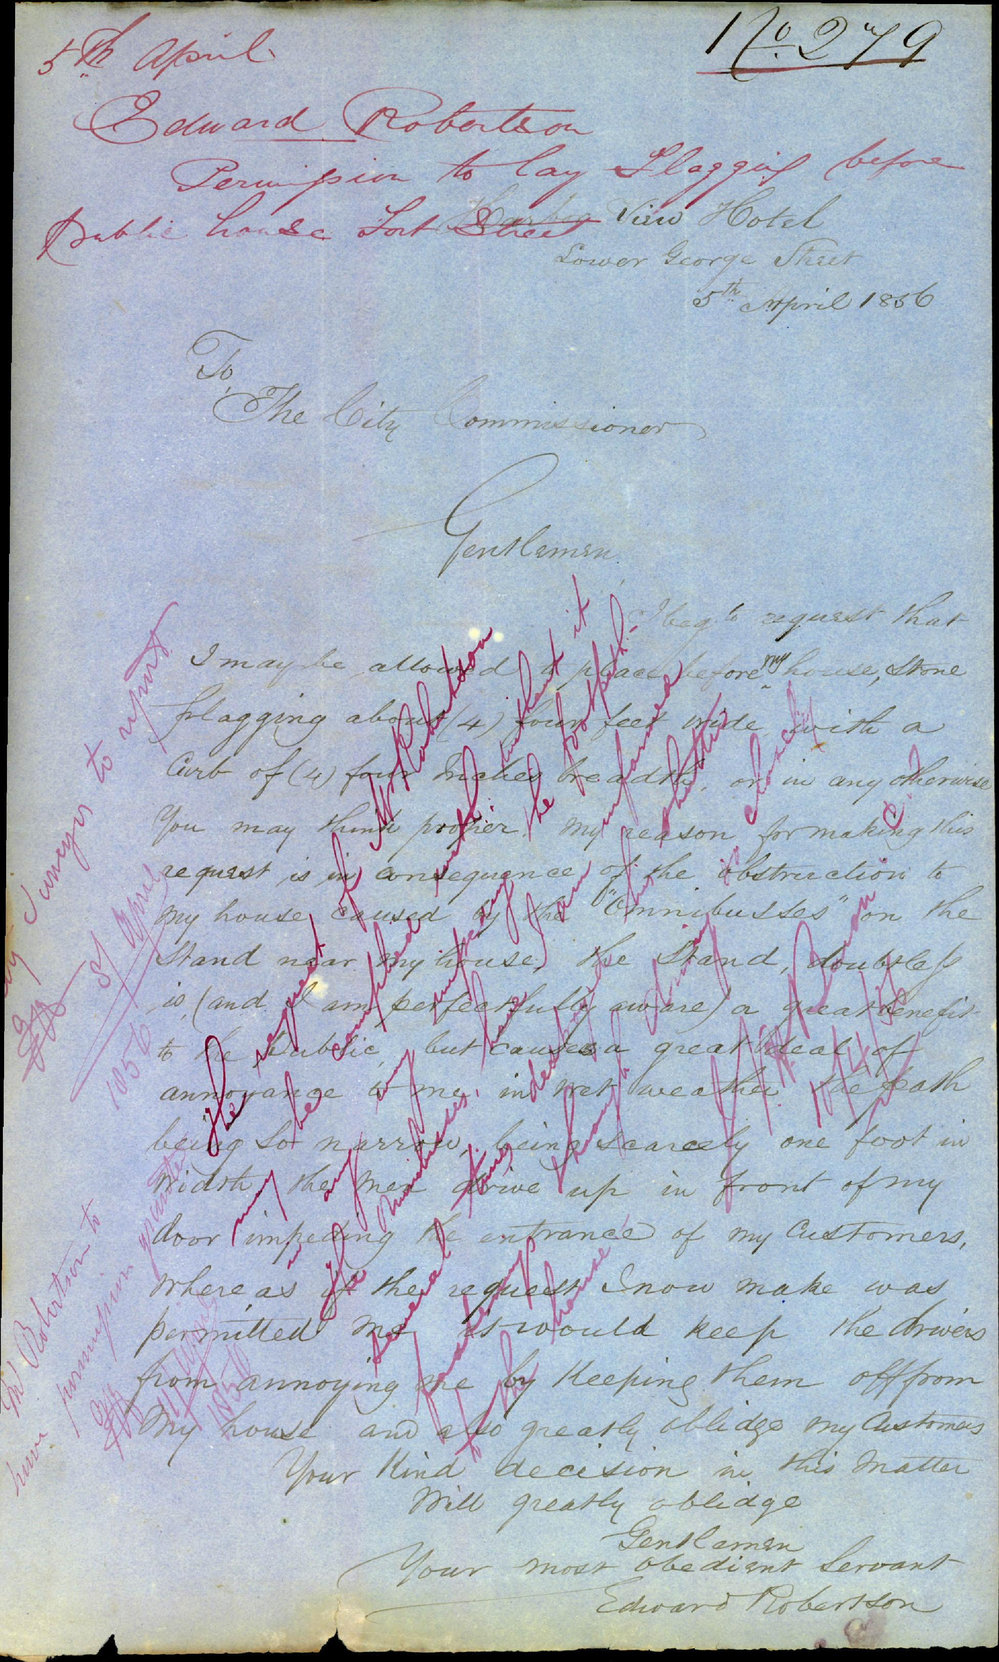 No 279
5th April
Edward Robertson
Permission to lay Flagging before
public house Fort Street
View Hotel
Lower George Street
5th April 1856
To
The City Commissioner
Gentlemen
I beg to request that
I may be allowed to place before my house, Stone
flagging about (4) four feet wide with a
Curb of (4) four Inches breadth, or in any otherwise
You may think propper, My reason for making this
request is in consequence of the obstruction to
my house, caused by the "Omnibusses" on the
Stand near my house, the Stand, doubtless
is, (and I am perfectfully aware) a great benefit
to the Public, but causes a great deal of
annoyance to me, in wet weather the path
being so narrow, being scarcely one foot in
Width, the Men drive up in front of my
door impeding the entrance of my Customers,
Where as if the request I now make was
permitted me, it would keep the drivers
from annoying me by Keeping them off from
My house and also greatly oblidge my Customers
Your Kind decision in this Matter
Will greatly oblidge
Gentlemen
Your most obedient Servant
Edward Robertson
The request of Mr Robertson
may be complied with without it
in any way impeding the footpath.
Of Omnibusses, have I am informed
several times
though driving in close
to the house
10/4/56
City Surveyor to report
8/ April
1856
Mr Robertson to
have permission granted
11/ April
1856